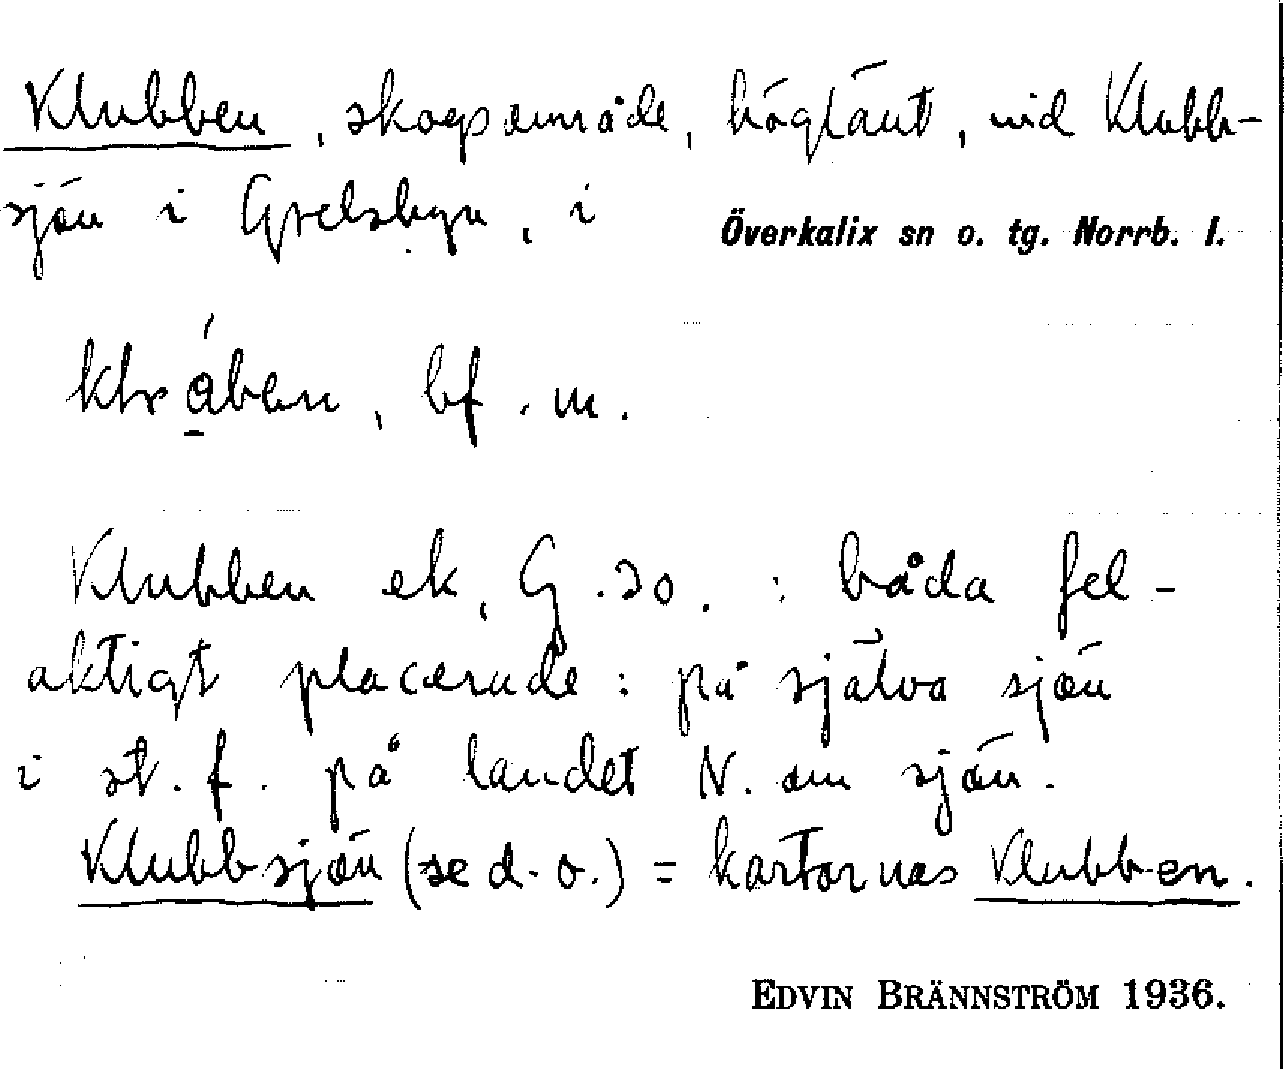 Klubben, skogsområde, högländt, vid Klubb-
sjön i Grelsbyn, i Överkalix sn o. tg. Norrb. l.
bf. m.
Klubben ek, G. so. : båda fel-
aktigt placerade : på själva sjön
i st. f. på landet N. om sjön.
Klubbsjön (se d. o.) = kartornas Klubben.
EDVIN BRÄNNSTRÖM 1936.